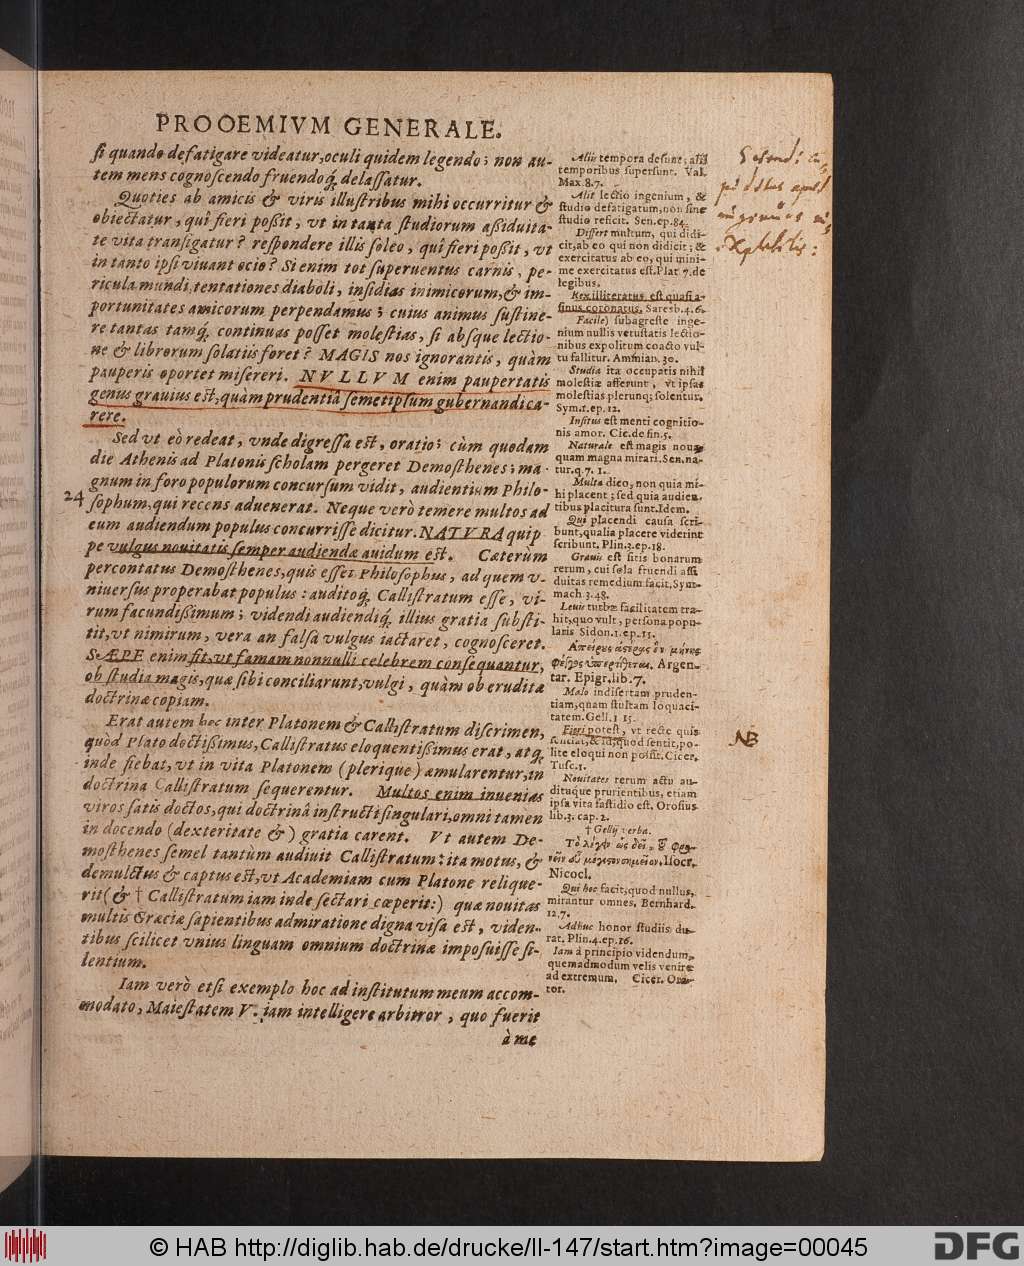 PROOEMIVM GENERALE.
ſi quando defatigare videatur, oculi quidem legendo; non au-
tem mens cognoſcendo fruendoq́; delaſſatur.
Quoties ab amicis & viris illuſtribus mihi occurritur &
obiectatur, quî fieri poßit, vt in tanta ſtudiorum aßiduita-
te vita tranſigatur? reſpondere illis ſoleo, quî fieri poßit, vt
in tanto ipſi viuant ocio? Si enim tot ſuperuentus carnis, pe-
ricula mundi, tentationes diaboli, inſidias inimicorum, & im-
portunitates amicorum perpendamus; cuius animus ſuſtine-
re tantas tamq́; continuas poſſet moleſtias, ſi abſque lectio-
ne & librorum ſolatiis foret? MAGIS nos ignorantis, quàm
pauperis oportet miſereri. NVLLVM enim paupertatis
genus grauius eſt, quàm prudentiâ ſemetipſum gubernandi ca-
rere.
Sed vt eò redeat, vnde digreſſa eſt, oratio; cùm quodam
die Athenis ad Platonis ſcholam pergeret Demoſthenes; ma-
gnum in foro populorum concurſum vidit, audientium Philo-
24
ſophum, qui recens aduenerat. Neque verò temere multos ad
eum audiendum populus concurriſſe dicitur. NATVRA quip-
pe vulgus nouitatis ſemper audiendæ auidum eſt. Cæterùm
percontatus Demoſthenes, quis eſſet Philoſophus, ad quem v-
niuerſus properabat populus: auditoq́; Calliſtratum eſſe, vi-
rum facundiſſimum; videndi audiendiq́; illius gratia ſubſti-
tit, vt nimirum, vera an falſa vulgus iactaret, cognoſceret.
SÆPE enim fit, vt famam nonnulli celebrem conſequantur,
ob ſtudia magis, quæ ſibi conciliarunt, vulgi, quàm ob eruditæ
doctrinæ copiam.
Erat autem hoc inter Platonem & Calliſtratum diſcrimen,
quòd Plato doctißimus, Calliſtratus eloquentißimus erat, atq;
inde fiebat, vt in vita Platonem (plerique) æmularentur, in
doctrina Calliſtratum ſequerentur. Multos enim inuenias
viros ſatis doctos, qui doctrinâ inſtructi ſingulari, omni tamen
in docendo (dexteritate &) gratia carent. Vt autem De-
moſthenes ſemel tantùm audiuit Calliſtratum: ita motus, &
demulctus & captus eſt, vt Academiam cum Platone relique-
rit (& † Calliſtratum iam inde ſectari cœperit:) quæ nouitas
multis Græciæ ſapientibus admiratione digna viſa eſt, viden-
tibus ſcilicet vnius linguam omnium doctrinæ impoſuiſſe ſi-
lentium.
Iam verò etſi exemplo hoc ad inſtitutum meum accom-
modato, Maieſtatem V. iam intelligere arbitror, quo fuerit
à me
Aliis tempora deſunt; aliis
temporibus ſuperſunt. Val.
Max. 8. 7.
Alit lectio ingenium, &
ſtudio defatigatum, non ſine
ſtudio reficit. Sen. ep. 84.
Differt multum, qui didi-
cit, ab eo qui non didicit; &
exercitatus ab eo, qui mini-
me exercitatus eſt. Plat. 7. de
legibus.
Rex illiteratus eſt quaſi a-
ſinus coronatus. Saresb. 4. 6.
Facile) ſubagreſte inge-
nium nullis vetuſtatis lectio-
nibus expolitum coacto vul-
tu fallitur. Ammian. 30.
Studia ita occupatis nihil
moleſtiæ afferunt, vt ipſas
moleſtias plerunq; ſolentur.
Sym. 1. ep. 12.
Inſitus eſt menti cognitio-
nis amor. Cic. de fin. 5.
Naturale eſt magis noua,
quam magna mirari. Sen. na-
tur. q. 7. 1.
Multa dico, non quia mi-
hi placent; ſed quia audien-
tibus placitura ſunt. Idem.
Qui placendi cauſa ſcri-
bunt, qualia placere viderint
ſcribunt. Plin. 3. ep. 18.
Grauis eſt ſitis bonarum
rerum, cui ſola fruendi aſſi
duitas remedium facit. Sym-
mach. 3. 48.
Leuis turbæ facilitatem tra-
hit, quo vult, perſona popu-
laris Sidon. 1. ep. 15.
Argen-
tar. Epigr. lib. 7.
Malo indiſertam pruden-
tiam, quam ſtultam loquaci-
tatem. Gell. 1 15.
Fieri poteſt, vt recte quis
ſentiat, & id, quod ſentit, po-
lite eloqui non poſſit. Cicer.
Tuſc. 1.
NB
Nouitates rerum actu au-
dituque prurientibus, etiam
ipſa vita faſtidio eſt. Oroſius
lib. 3. cap. 2.
† Gellij verba.
Iſocr.
Nicocl.
Qui hoc facit, quod nullus,
mirantur omnes. Bernhard.
12, 7.
Adhuc honor ſtudiis du-
rat. Plin. 4. ep. 16.
Iam à principio videndum,
quemadmodum velis venire
ad extremum. Cicer. Ora-
tor.
© HAB http://diglib.hab.de/drucke/ll-147/start.htm?image=00045
DFG